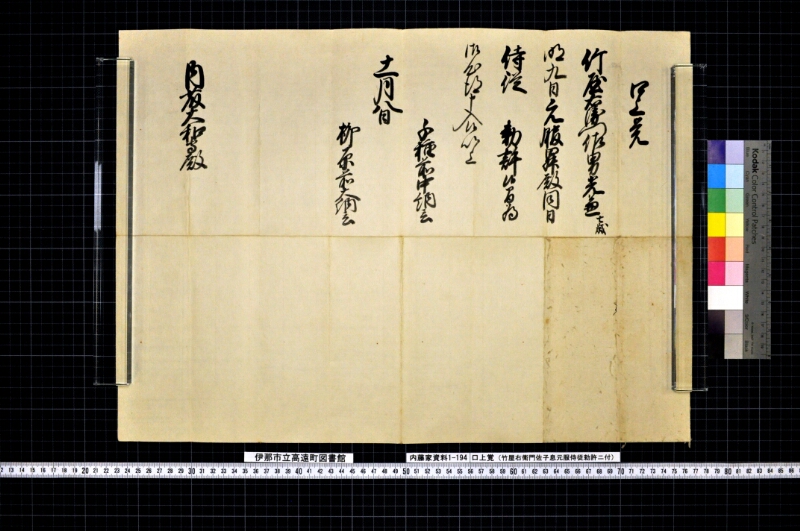 口上覚
竹屋右衛門佐男光
明九日元服昇殿同日
侍従 勅許候
申入候以上
千種前中納言
十一月八日
柳原前大納言
内藤大和守殿
Kodak Color Control Patches
伊那市立高遠町図書館
内藤家資料1-194 口上覚（竹屋右衛門佐子息元服侍従勅許ニ付）